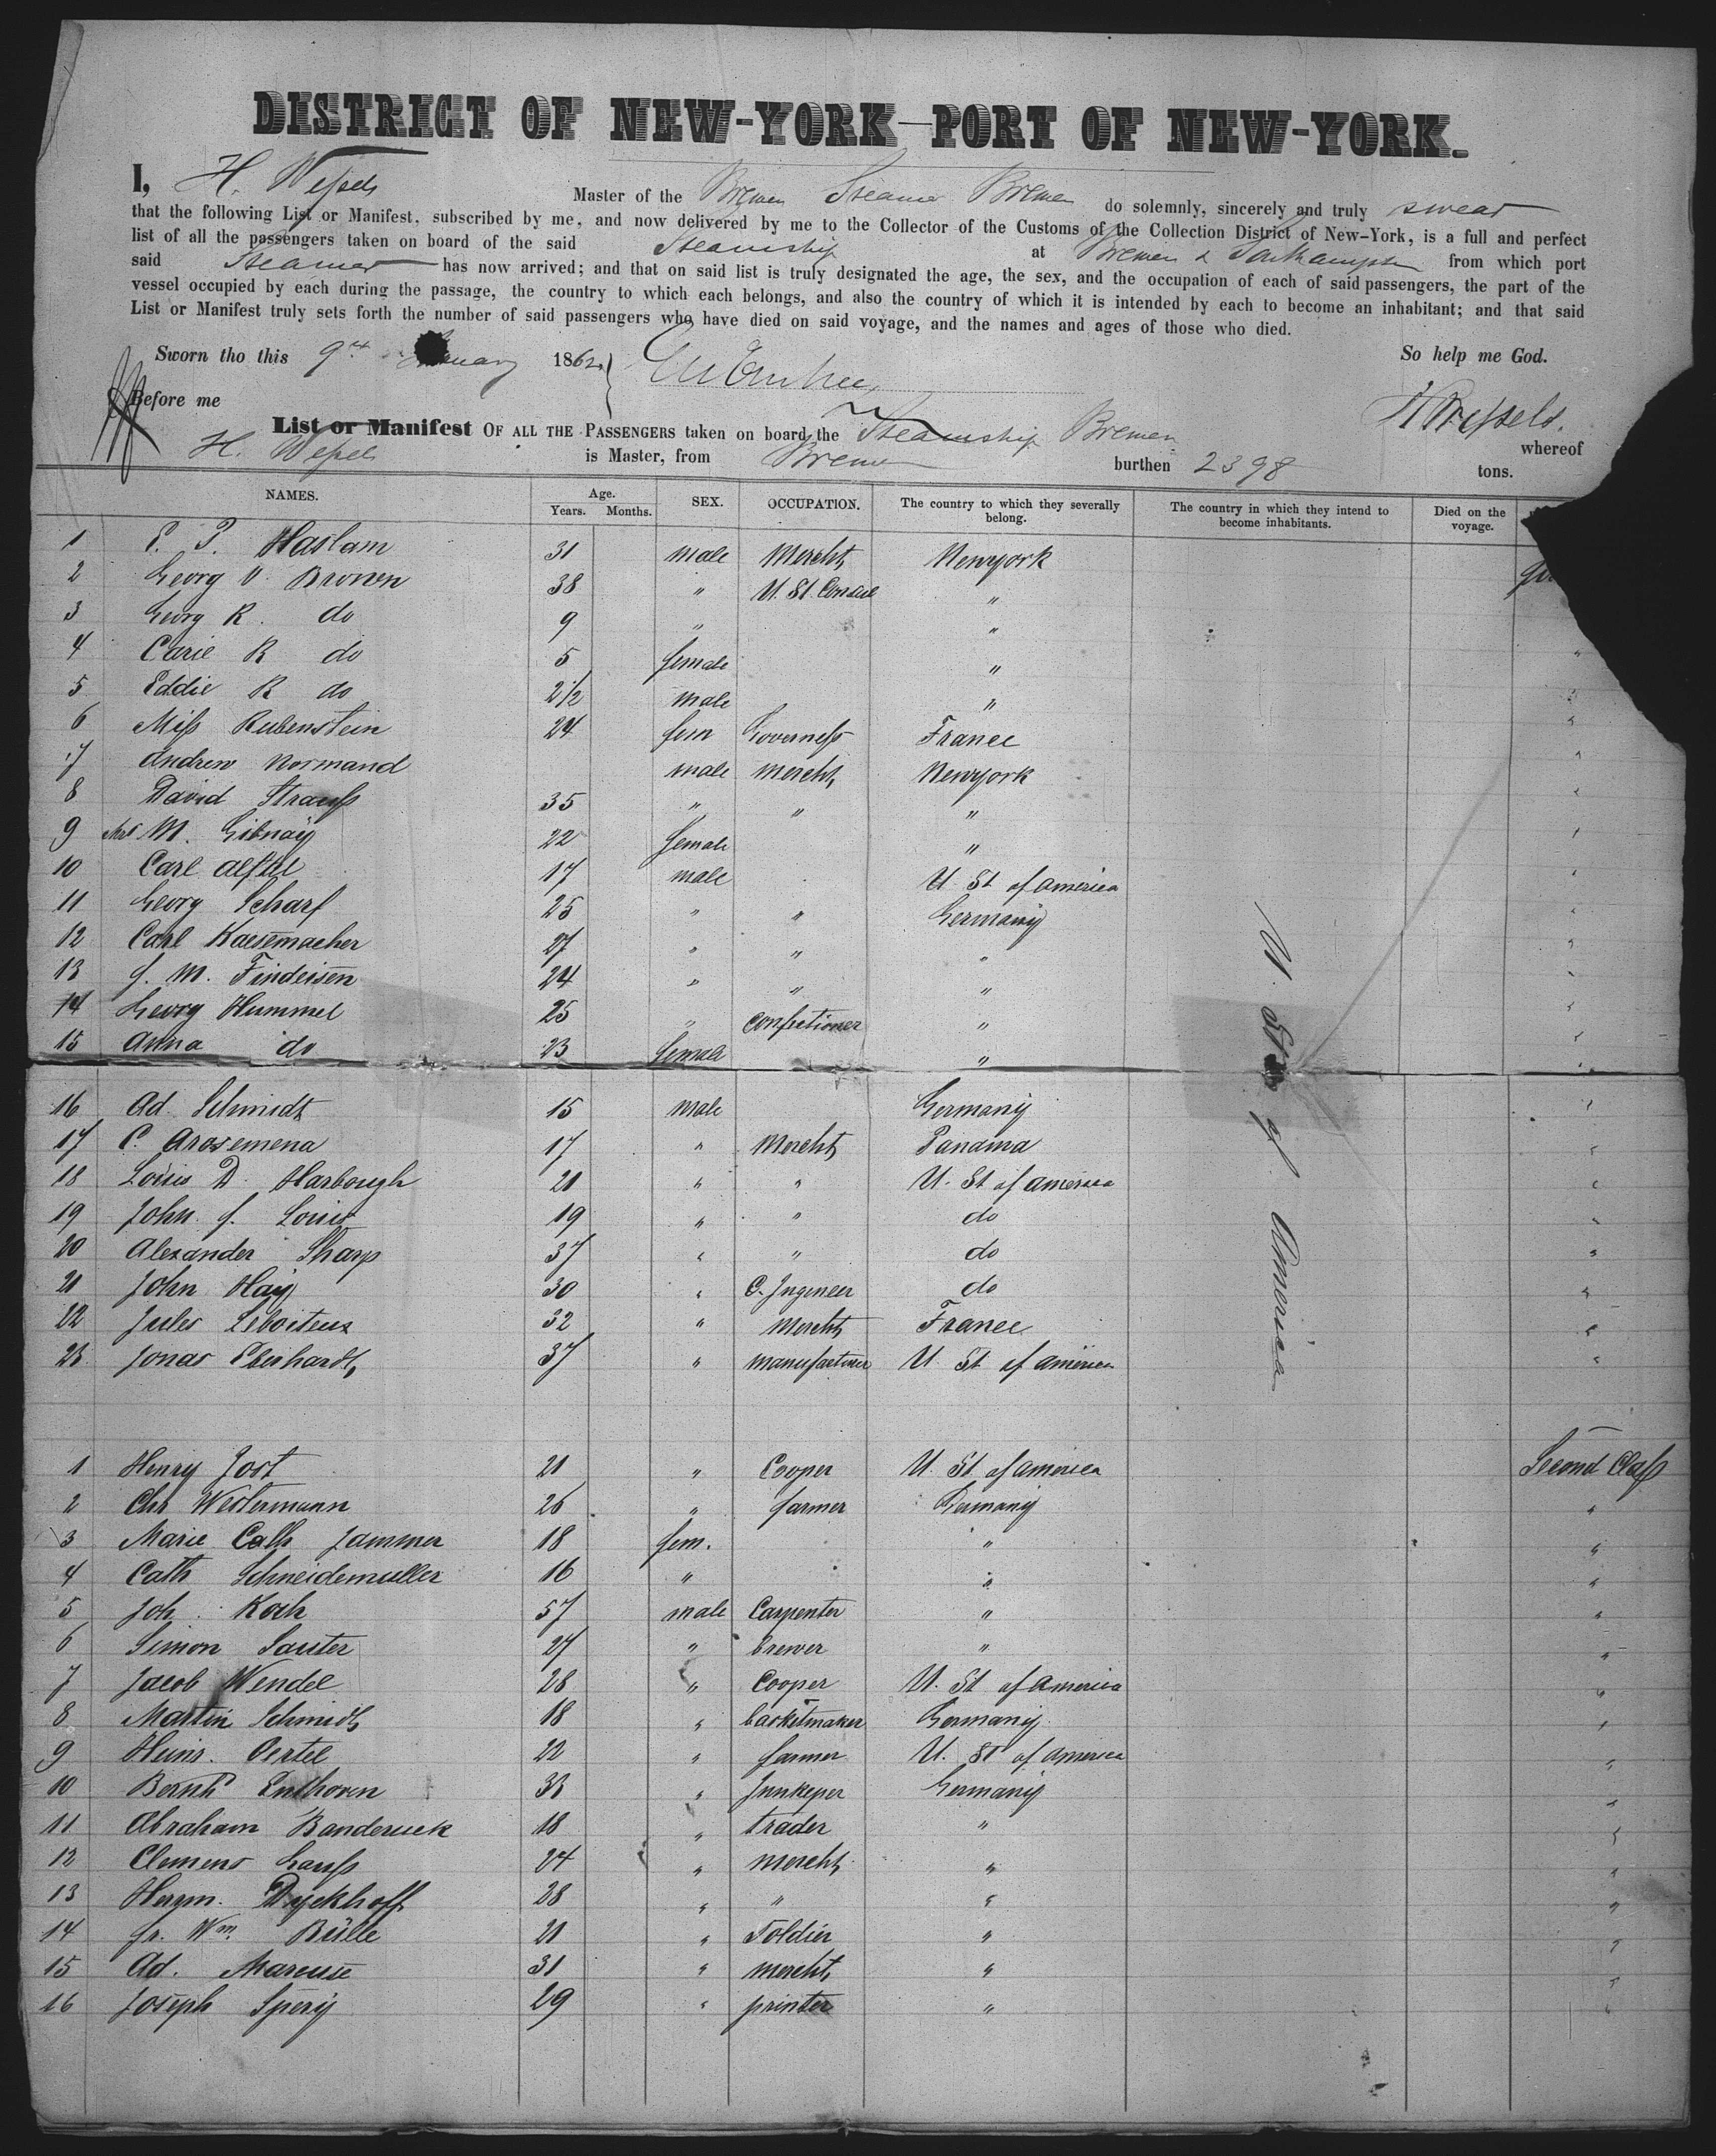 DISTRICT OF NEW-YORK—PORT OF NEW-YORK.
I, H. Wessels Master of the Bremen Steamer Bremen do solemnly, sincerely and truly swear
that the following List or Manifest, subscribed by me, and now delivered by me to the Collector of the Customs of the Collection District of New-York, is a full and perfect
list of all the passengers taken on board of the said Steamship at Bremen & Southampton from which port
said Steamer has now arrived; and that on said list is truly designated the age, the sex, and the occupation of each of said passengers, the part of the
vessel occupied by each during the passage, the country to which each belongs, and also the country of which it is intended by each to become an inhabitant; and that said
List or Manifest truly sets forth the number of said passengers who have died on said voyage, and the names and ages of those who died.
Sworn tho this 9th 1862. So help me God.
Before me H Wessels.
List or Manifest OF ALL THE PASSENGERS taken on board the Steamship Bremen whereof
H. Wessels is Master, from Bremen burthen 2398 tons.
NAMES. Age. Years. Months. SEX. OCCUPATION. The country to which they severally belong. The country in which they intend to become inhabitants. Died on the voyage.
1 E. P. Haslam 31 male Mercht, Newyork
2 Georg V. Brown 38 " U. St. Consul "
3 Georg R. do 9 " "
4 Carie R do 5 female "
5 Eddie R do 2 1/2 male "
6 Miss Rubenstein 24 fem Governess France
7 Andrew Normand male mercht, Newyork
8 David Strauss 35 " " "
9 Mrs M. Gibnay 22 female "
10 Carl 17 male U. St of america
11 Georg Scharf 25 " " Germany
12 Carl Kaesemacher 27 " " "
13 J. M. Findeisen 24 " " "
14 Georg Hummel 25 " confectioner "
15 Anna do 23 female "
16 Ad. Schmidt 15 male Germany
17 C. Arosemena 17 " Mercht, Panama
18 Louis D. Harbough 21 " " U. St of america
19 John J. Louis 19 " " do
20 Alexander Sharp 37 " " do
21 John Hay 30 " C. Ingeneer do
22 Jules Leboiteux 32 " Mercht, France
23 Jonas Eberhardt, 37 " manufacturer U. St of america
U. St of America
1 Henry Jost 21 " Cooper U. St of america Second Class
2 Chr Westermann 26 " farmer Germany "
3 Marie Cath Jammer 18 fem. " "
4 Cath Schneidemuller 16 " " "
5 Joh. Koch 57 male Carpenter " "
6 Simon Sauter 27 " brewer " "
7 Jacob Wendel 28 " Cooper U. St of america "
8 Martin Schmidt, 18 " basketmaker Germany "
9 Heinr. Oertel 22 " farmer U. St of america "
10 Bernh Enthoven 33 " Innkeper Germany "
11 Abraham Banderuck 18 " trader " "
12 Clemens Gauss 24 " mercht, " "
13 Herrm. Dyckhoff 28 " " " "
14 Fr. Wm. Bülle 21 " Soldier " "
15 Ad. Marcuse 31 " mercht, " "
16 Joseph Spery 29 " printer " "